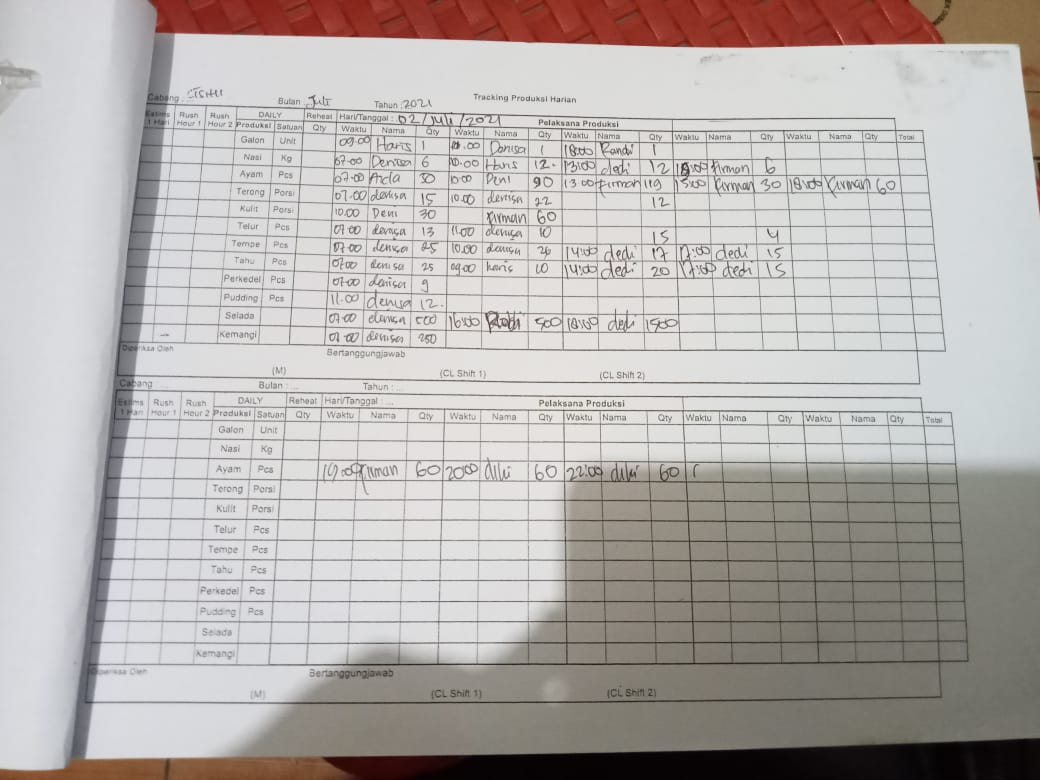 Tracking Produksi Harian
Cabang : Bulan : Juli Tahun : 2021
Estims 1 Hari Rush Hour 1 Rush Hour 2 DAILY Reheat Hari/Tanggal : 02/Juli/2021 Pelaksana Produksi
Produksi Satuan Qty Waktu Nama Qty Waktu Nama Qty Waktu Nama Qty Waktu Nama Qty Waktu Nama Qty Total
Galon Unit 09.00 Haris 1 .00 Denisa 1 18:00 Randi 1
Nasi Kg 07.00 Denisa 6 10.00 Haris 12. 13:00 dedi 12 18:00 firman 6
Ayam Pcs 07.00 Aida 30 10:00 Deni 90 13:00 firman 119 15:00 firman 30 18:00 firman 60
Terong Porsi 07.00 denisa 15 10.00 denisa 22 12
Kulit Porsi 10.00 Deni 30 firman 60
Telur Pcs 07.00 denisa 13 11.00 denisa 10 15 4
Tempe Pcs 07.00 denisa 25 10.00 denisa 26 14:00 dedi 17 17:00 dedi 15
Tahu Pcs 07.00 denisa 25 09.00 haris 10 14:00 dedi 20 17:00 dedi 15
Perkedel Pcs 07.00 denisa 9
Pudding Pcs 11.00 denisa 12.
Selada 07.00 denisa 500 16:00 500 18:00 dedi 1500
Kemangi 07.00 denisa 250
Diperiksa Oleh Bertanggungjawab
(M) (CL Shift 1) (CL Shift 2)
Cabang : ... Bulan : ... Tahun : ...
Estims 1 Hari Rush Hour 1 Rush Hour 2 DAILY Reheat Hari/Tanggal : ... Pelaksana Produksi
Produksi Satuan Qty Waktu Nama Qty Waktu Nama Qty Waktu Nama Qty Waktu Nama Qty Waktu Nama Qty Total
Galon Unit
Nasi Kg
Ayam Pcs 19.00 firman 60 20:00 diki 60 22:00 diki 60
Terong Porsi
Kulit Porsi
Telur Pcs
Tempe Pcs
Tahu Pcs
Perkedel Pcs
Pudding Pcs
Selada
Kemangi
Diperiksa Oleh Bertanggungjawab
(M) (CL Shift 1) (CL Shift 2)